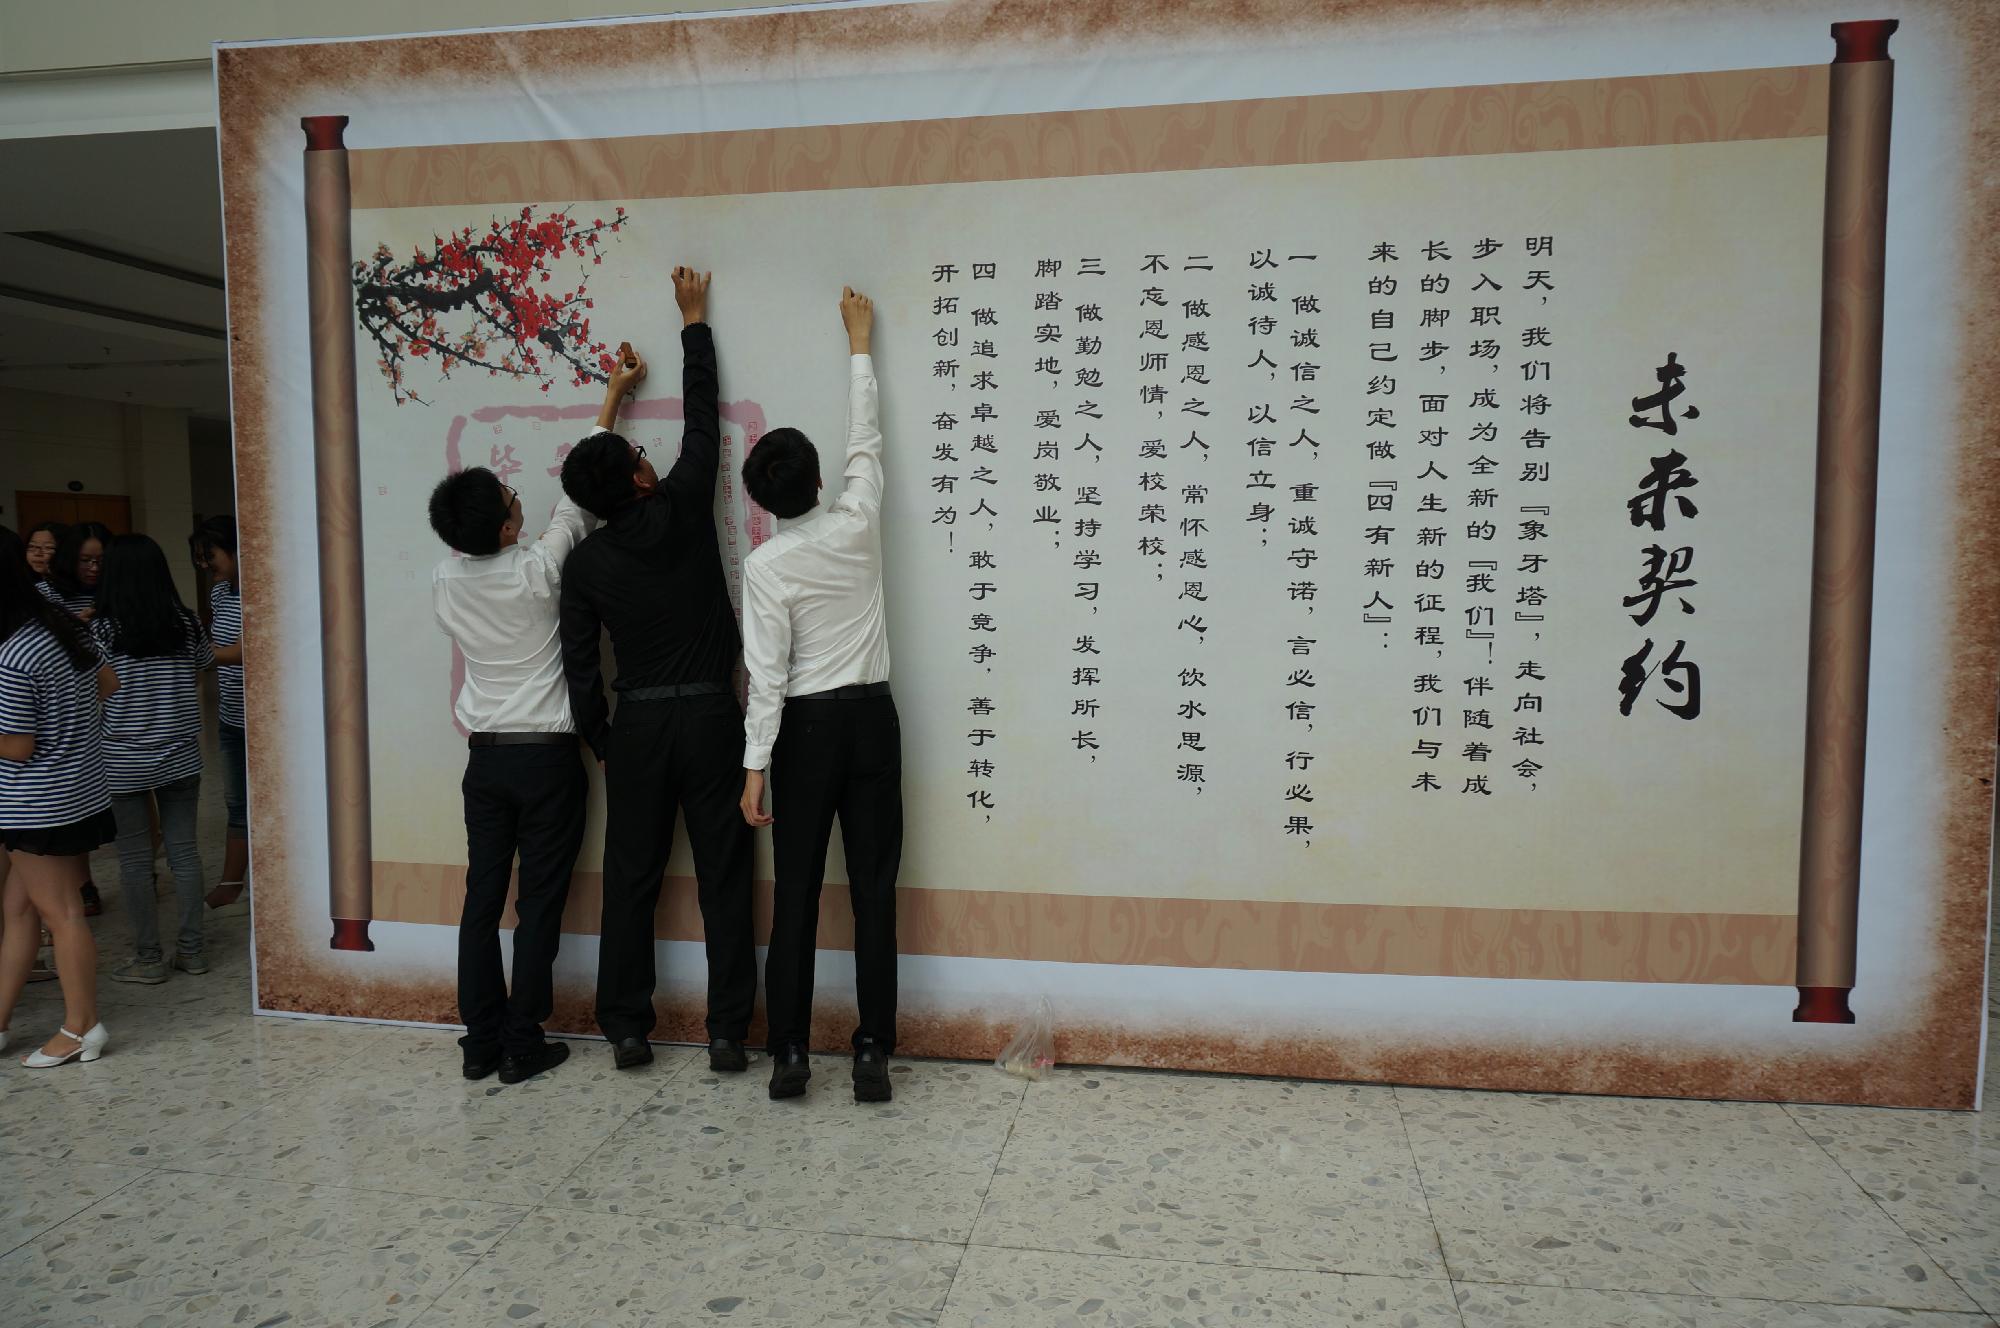 未来契约
明天，我们将告别『象牙塔』，走向社会，
步入职场，成为全新的『我们』！伴随着成
长的脚步，面对人生新的征程，我们与未
来的自己约定做『四有新人』：
一 做诚信之人，重诚守诺，言必信，行必果，
以诚待人，以信立身；
二 做感恩之人，常怀感恩心，饮水思源，
不忘恩师情，爱校荣校；
三 做勤勉之人，坚持学习，发挥所长，
脚踏实地，爱岗敬业；
四 做追求卓越之人，敢于竞争，善于转化，
开拓创新，奋发有为！
毕